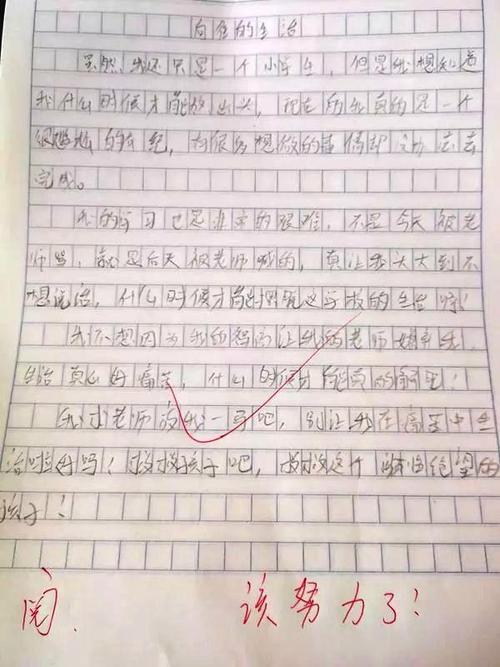 向往的生活
虽然,我还只是一个小学生,但是我想知道
我什么时候才能放出头,现在的我真的是一个
很尴尬的年纪,有很多想做的事情却又办法去
完成。
我的学习也是非常的艰难,不是今天被老
师骂,就是后天被老师喊的,真让我头大到不
想说话,什么时候才能摆脱这学校的生活呀!
我不想因为我的智商让我的老师嫌弃我,
生活真心好痛苦,什么的候才能真的解脱!
我求老师放我一马吧,别让我在痛苦中生
活啦好吗!救救孩子吧,救救这个濒临绝望的
孩子!
阅. 该努力了!